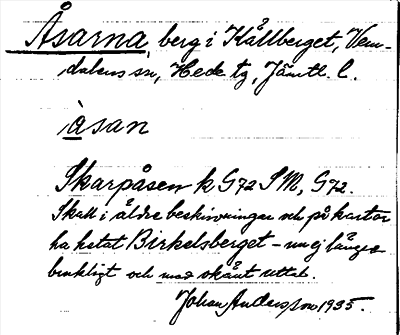 Åsarna, berg i Kållberget, Vem-
dalens sn, Hede tg, Jämtl. l.
àsan
Skarpåsen k G72 SM, G72.
Skall i äldre beskrivningar och på kartor
ha hetat Birkelsberget - nu ej länge
brukligt och med okänt uttal.
Johan Andersson 1935.